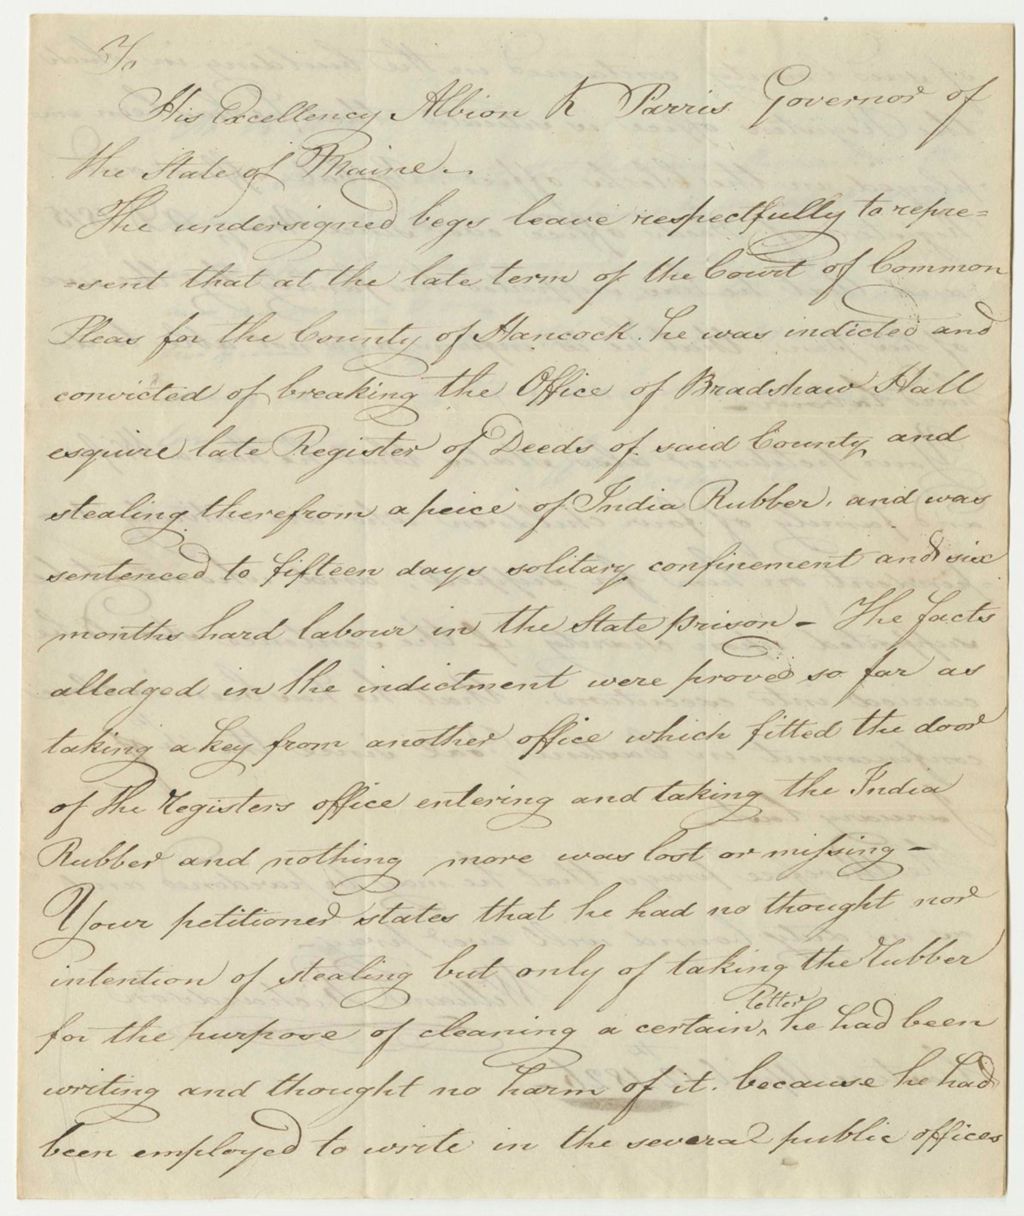 To
His Excellency Albion K Parris Governor of
the State of Maine.
The undersigned begs leave respectfully to repre=
=sent that at the late term of the Court of Common
Pleas for the County of Hancock. he was indicted and
convicted of breaking the Office of Bradshaw Hall
esquire late Register of Deeds of said County, and
stealing therefrom a peice of India Rubber, and was
sentenced to fifteen days solitary confinement and six
months hard labour in the State prison – The facts
alledged in the indictment were proved so far as
taking a key from another office which fitted the door
of the Registers office entering and taking the India
Rubber and nothing more was lost or missing –
Your petitioner states that he had no thought nor
intention of stealing but only of taking the Rubber
for the purpose of cleaning a certain ^ letter he had been
writing and thought no harm of it. because he had
been employed to write in the several public offices